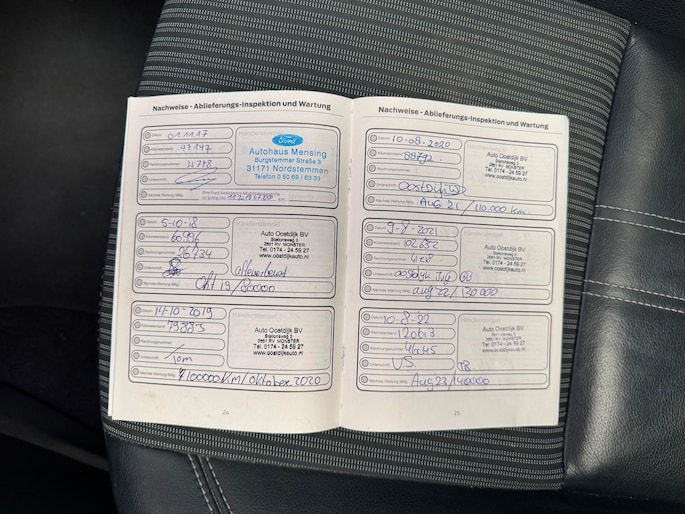 Nachweise - Ablieferungs-Inspektion und Wartung
Datum 011117
Kilometerstand 47147
Rechnungsnummer
Unterschrift
Nächste Wartung fällig
Ford
Autohaus Mensing
Burgstemmer Straße 3
31171 Nordstemmen
Telefon 0 50 69 / 63 33
Datum 5-10-18
Kilometerstand 60996
Rechnungsnummer 26734
Unterschrift
Nächste Wartung fällig Okt 19/80000
Auto Oostdijk BV
Stationsweg 3
2681 RV MONSTER
Tel. 0174 - 24 59 27
www.oostdijkauto.nl
Datum 14-10-2019
Kilometerstand 79885
Rechnungsnummer
Unterschrift Tom
Nächste Wartung fällig 100000Km/oktober 2020
Auto Oostdijk BV
Stationsweg 3
2681 RV MONSTER
Tel. 0174 - 24 59 27
www.oostdijkauto.nl
24
Nachweise - Ablieferungs-Inspektion und Wartung
Datum 10-08-2020
Kilometerstand 88792
Rechnungsnummer
Unterschrift
Nächste Wartung fällig Aug '21/110.000 km
Auto Oostdijk BV
Stationsweg 3
2681 RV MONSTER
Tel. 0174 - 24 59 27
www.oostdijkauto.nl
Datum 9-8-2021
Kilometerstand 102652
Rechnungsnummer
Unterschrift
Nächste Wartung fällig aug '22/130000
Auto Oostdijk BV
Stationsweg 3
2681 RV MONSTER
Tel. 0174 - 24 59 27
www.oostdijkauto.nl
Datum 10-8-22
Kilometerstand 120613
Rechnungsnummer
Unterschrift US. TB
Nächste Wartung fällig Aug 23/140000
Auto Oostdijk BV
Stationsweg 3
2681 RV MONSTER
Tel. 0174 - 24 59 27
www.oostdijkauto.nl
25